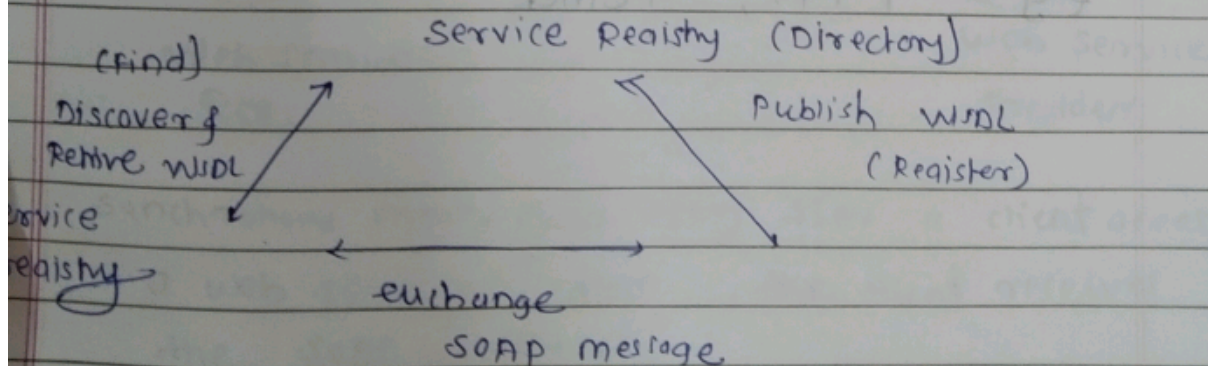 Service Regishy (Directory)
(Find)
Discover &
Retrive WSDL
Publish WSDL
(Register)
ervice
regishy
euchange
SOAP message